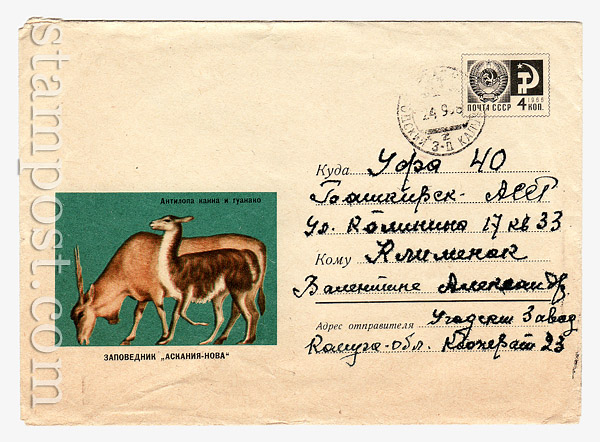 stampost.com
1966
ПОЧТА СССР 4 КОП.
24 9
Куда Уфа 40
Башкирск. АССР
Ул. Калинина 17 кв 33
Кому Клименок
Валентине Александр
Адрес отправителя Угодский Завод
Калуга-обл.
23
Антилопа канна и гуанако
ЗАПОВЕДНИК „АСКАНИЯ-НОВА“